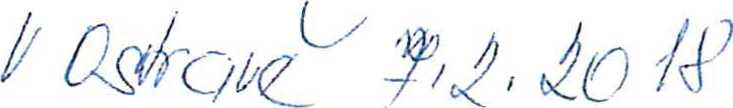 V Ostravě 7.2.2018